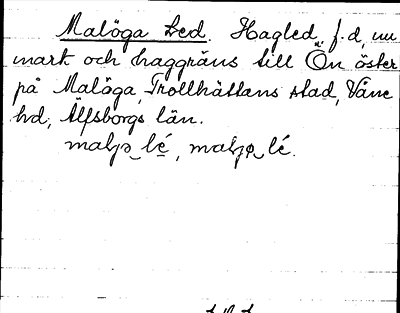 Malöga Led. Hagled, f.d., nu
mark och haggräns till Ön öster
på Malöga, Trollhättans stad, Väne
hd, Älfsborgs län.